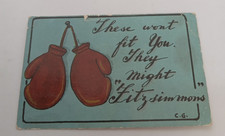 These wont
fit You.
They
Might
"Fitzsimmons"
C.G.